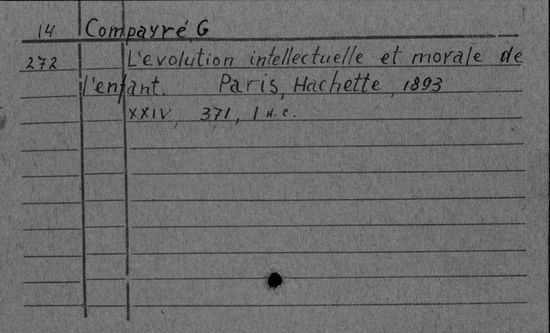 14 Compayré, G
272 L'evolution intellectuelle et morale de
l'enfant. Paris, Hachette, 1893
XXIV, 371, 1 н.с.